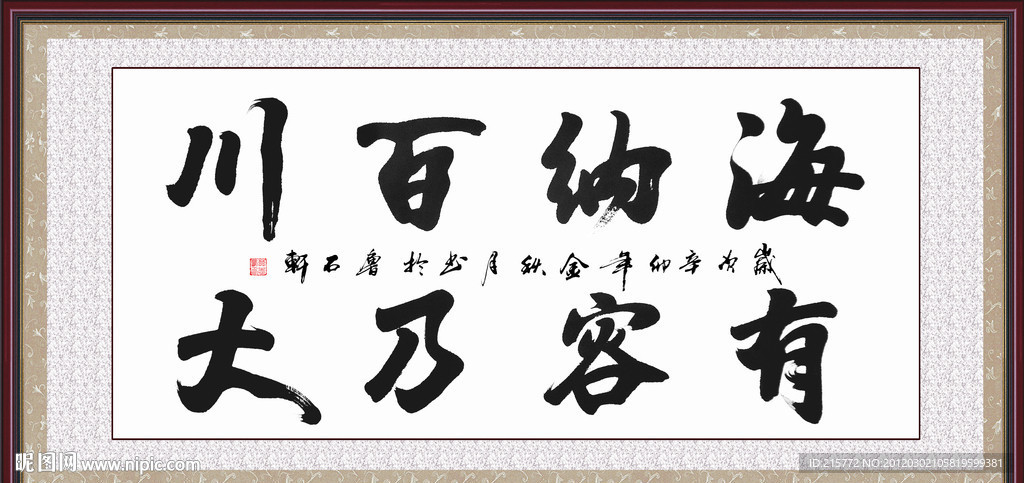 海纳百川
歲次辛卯年金秋月书於魯石軒
有容乃大
昵图网 www.nipic.com
ID:215772 NO:20120302105819599381